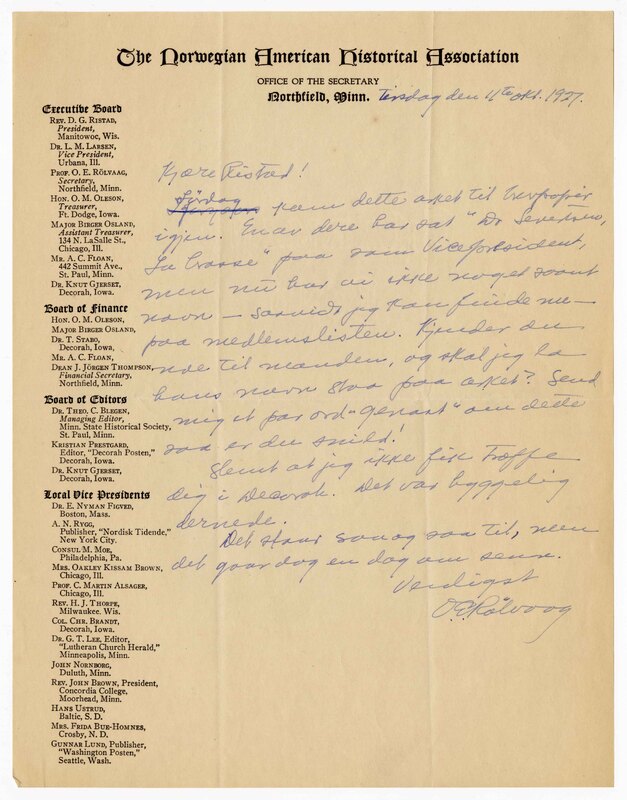 The Norwegian American Historical Association
OFFICE OF THE SECRETARY
Northfield, Minn. Tirsdag den 11te okt. 1927.
Executive Board
REV. D. G. RISTAD,
President,
Manitowoc, Wis.
DR. L. M. LARSEN,
Vice President,
Urbana, Ill.
PROF. O. E. RÖLVAAG,
Secretary,
Northfield, Minn.
HON. O. M. OLESON,
Treasurer,
Ft. Dodge, Iowa.
MAJOR BIRGER OSLAND,
Assistant Treasurer,
134 N. LaSalle St.,
Chicago, Ill.
MR. A. C. FLOAN,
442 Summit Ave.,
St. Paul, Minn.
DR. KNUT GJERSET,
Decorah, Iowa.
Board of Finance
HON. O. M. OLESON,
MAJOR BIRGER OSLAND,
DR. T. STABO,
Decorah, Iowa.
MR. A. C. FLOAN,
DEAN J. JÖRGEN THOMPSON,
Financial Secretary,
Northfield, Minn.
Board of Editors
DR. THEO. C. BLEGEN,
Managing Editor,
Minn. State Historical Society,
St. Paul, Minn.
KRISTIAN PRESTGARD,
Editor, "Decorah Posten,"
Decorah, Iowa.
DR. KNUT GJERSET,
Decorah, Iowa.
Local Vice Presidents
DR. E. NYMAN FIGVED,
Boston, Mass.
A. N. RYGG,
Publisher, "Nordisk Tidende,"
New York City.
CONSUL M. MOE,
Philadelphia, Pa.
MRS. OAKLEY KISSAM BROWN,
Chicago, Ill.
PROF. C. MARTIN ALSAGER,
Chicago, Ill.
REV. H. J. THORPE,
Milwaukee, Wis.
COL. CHR. BRANDT,
Decorah, Iowa.
DR. G. T. LEE, Editor,
"Lutheran Church Herald,"
Minneapolis, Minn.
JOHN NORNBORG,
Duluth, Minn.
REV. JOHN BROWN, President,
Concordia College,
Moorhead, Minn.
HANS USTRUD,
Baltic, S. D.
MRS. FRIDA BUE-HOMNES,
Crosby, N. D.
GUNNAR LUND, Publisher,
"Washington Posten,"
Seattle, Wash.
Kjære Ristad!
Lördag
kom dette arket til brevpapir
igjen. En av dere har sat "Dr. Severtsen,
La Crosse" paa som Vicepresident,
men nu har vi ikke noget saant
navn — saavidt jeg kan finde ne —
paa medlemslisten. Kjender du
noe til manden, og skal jeg la
hans navn staa paa arket? Send
mig et par ord "genast" om dette
saa er du snild!
Slemt at jeg ikke fik træffe
dig i Decorah. Det var hyggelig
dernede.
Det staar saa og saa til, men
det gaar dog en dag om senn.
Venligst
O.E. Rölvaag